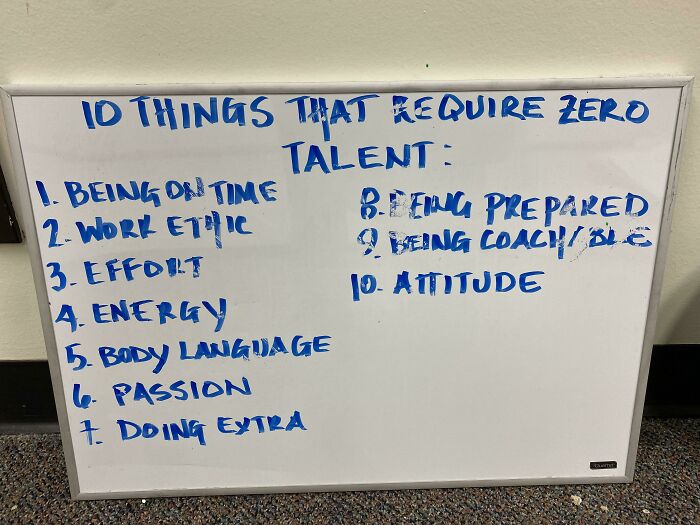 10 THINGS THAT REQUIRE ZERO
TALENT:
1. BEING ON TIME
2. WORK ETHIC
3. EFFORT
4. ENERGY
5. BODY LANGUAGE
6. PASSION
7. DOING EXTRA
8. BEING PREPARED
9. BEING COACH/BLE
10. ATTITUDE
Quartet